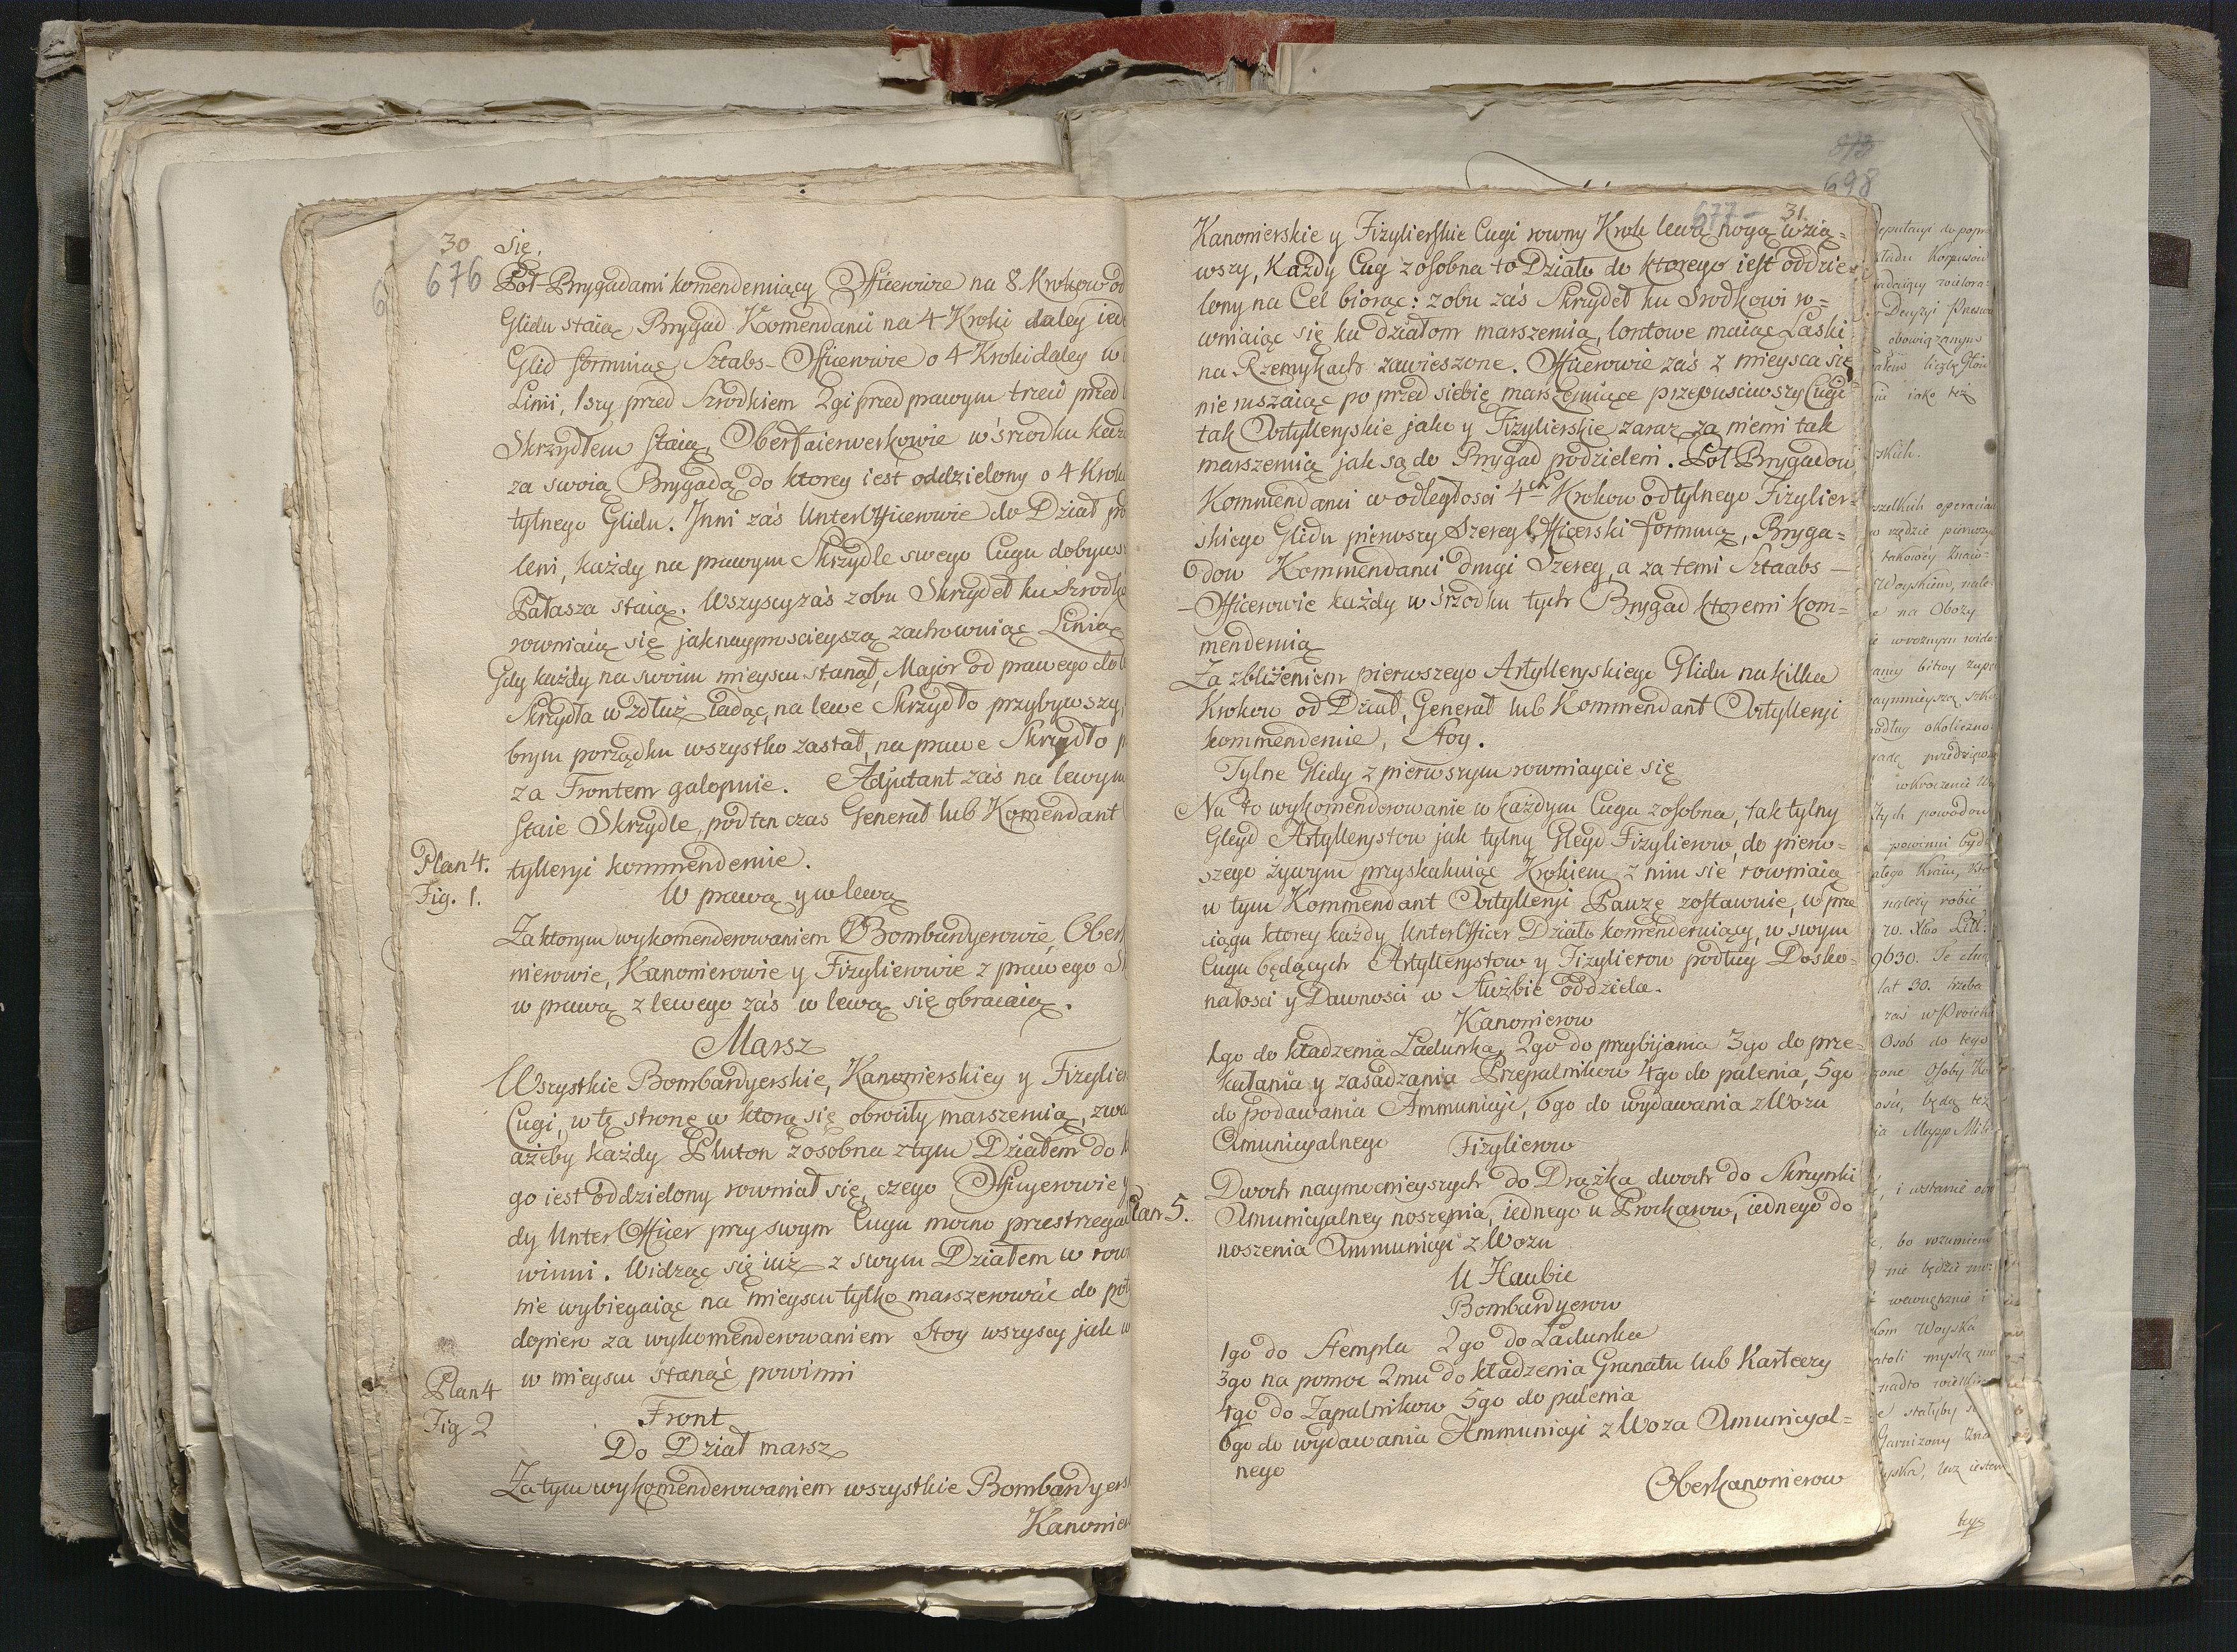 30
676
się.
Pół-Brygadami komenderuiący Officerowie na 8. Krokow od
Glidu staią, Brygad Komendanci na 4 Kroki daley ied
Glid formuiąc, Sztabs-Officerowie o 4 Kroki daley w
Linii, 1szy przed Szrodkiem 2gi przed prawym trzeci przed
Skrzydłem staią, Oberfaierwerkowie w śrzodku każ
za swoią Brygadą do ktorey iest oddzielony o 4 Krok
tylnego Glidu. Inni zaś UnterOfficerowie do Dział po
leni, każdy na prawym Skrzydle swego Cugu dobyws
Pałasza staią. Wszyscy zaś z obu Skrzydeł ku Szrodk
rowniaią się jaknayprościeyszą zachowuiąc Linią
Gdy każdy na swoim mieyscu stanął, Major od prawego do l
Skrzydła wzdłuż iadąc, na lewe Skrzydło przybywszy,
brym porządku wszystko zastał, na prawe Skrzydło p
za Frontem galopuie. Adjutant zaś na lewym
staie Skrzydle, pod ten czas Generał lub Komendant
Plan 4.
Fig. 1.
tylleryi kommenderuie.
W prawą y w lewą
Za ktorym wykomenderowaniem Bombardyerowie, Ober
nierowie, Kanonierowie y Fizylierowie z prawego S
w prawą z lewego zaś w lewą się obracaią.
Marsz
Wszystkie Bombardyerskie, Kanonierskiey y Fizylier
Cugi, w tę stronę w ktorą się obrociły marszeruią, zwa
ażeby każdy Pluton zosobna z tym Działem do k
go iest oddzielony rowniał się, czego Officyerowie y
dy UnterOfficer przy swym Cugu mocno przestrzega
winni. Widząc się iuż z swym Działem w row
nie wybiegaiąc na mieyscu tylko marszerować do po
dopiero za wykomenderowaniem Stoy wszyscy jak w
w mieyscu stanąć powinni
Plan 4
Fig 2
Front
Do Dział marsz
Za tym wykomenderowaniem wszystkie Bombardyers
Kanonier
698
677
31.
Kanonierskie y Fizylierskie Cugi rowny Krok lewą nogą wzią-
wszy, Każdy Cug zosobna to Działo do ktorego iest oddzie-
lony na Cel biorąc: z obu zaś Skrzydeł ku Srodkowi ro=
wniaiąc się ku działom marszeruią, lontowe maiąc Laski
na Rzemykach zawieszone. Officerowie zaś z mieysca się
nie ruszaiąc po przed siebię marszeruiące przepuściwszy Cugi
tak Artylleryskie jako y Fizylierskie zaraz za niemi tak
marszeruią jak są do Brygad podzieleni. Poł Brygadow
Kommendanci w odległosci 4ch Krokow od tylnego Fizylier-
skiego Glidu pierwszy Szereg Officerski formuią, Bryga=
dow Kommendanci drugi Szereg, a za temi Sztaabs-
-Officerowie każdy w śrzodku tych Brygad ktoremi kom=
menderuią
Za zbliżeniem pierwszego Artylleryskiego Glidu na kilka
Krokow od Dział, Generał lub Kommendant Artylleryi
kommenderuie, Stoy.
Tylne Glidy z pierwszym rowniaycie się
Na to wykomenderowanie w każdym Cugu zosobna, tak tylny
Gleyd Artyllerystow jak tylny Gleyd Fizylierow, do pierw-
szego żywym przyskakuiąc Krokiem z nim się rowniaią
w tym Kommendant Artylleryi Pauzę zostawuie, w prze
ciągu ktorey każdy UnterOfficer Działo komenderuiący, w swym
Cugu będących Artyllerystow y Fizylierow podług Dosko-
nałosci y Dawnosci w Służbie oddziela.
Kanonierow
1go do kładzenia Ładunka, 2go do przybijania 3go do prze-
kułania y zasadzania Przepalnikow 4go do palenia, 5go
do podawania Ammunicyi, 6go do wydawania z Wozu
Amunicyalnego
Fizylierow
Dwoch naymocnieyszych do Drążka dwoch do Skrzynki
Plan 5.
Amunicyalney noszenia, iednego u Prochasow, iednego do
noszenia Ammunicyi z Wozu
U Haubic
Bombardyerow
1go do Stempla 2go do Ładunka
3go na pomoc 2mu do kładzenia Granatu lub Karteczy
4go do Zapalnikow 5go do palenia
6go do wydawania Ammunicyi z Woza Amunicyal=
nego
Oberkanonierow